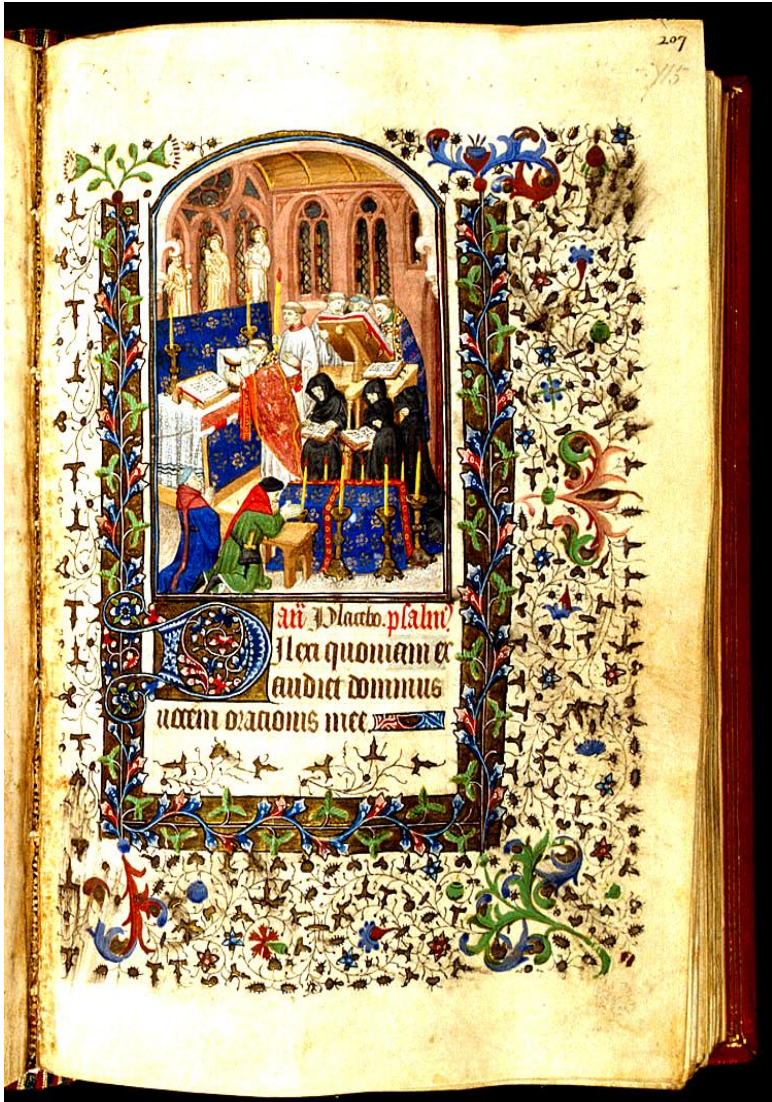 207
an̄ Placebo. psalm̄
Dilexi quoniam ex
audiet dominus
uocem orationis mee.